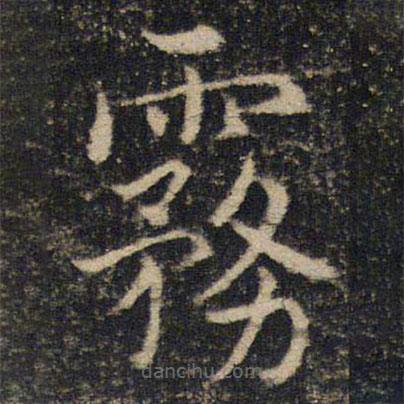 霧
dancihu.com